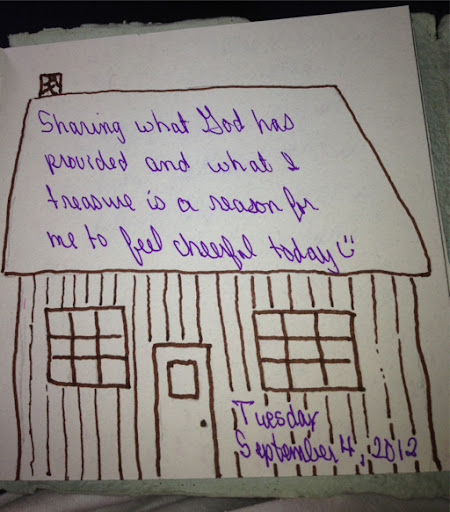 Sharing what God has
provided and what I
treasure is a reason for
me to feel cheerful today
Tuesday
September 4, 2012